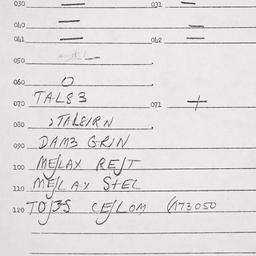 030 — 031 —
040 — —
041 — 042 —
050
060 O
070 TAL83 071 +
080
090 DAM3 GRIN
100 ME/LAX RE/T
110 ME/LAX StEL
120 CE/LOM 173050